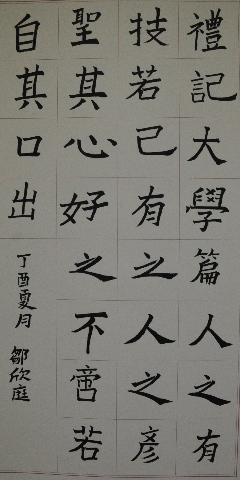 禮記大學篇人之有
技若己有之人之彥
聖其心好之不啻若
自其口出
丁酉夏月 鄒欣庭